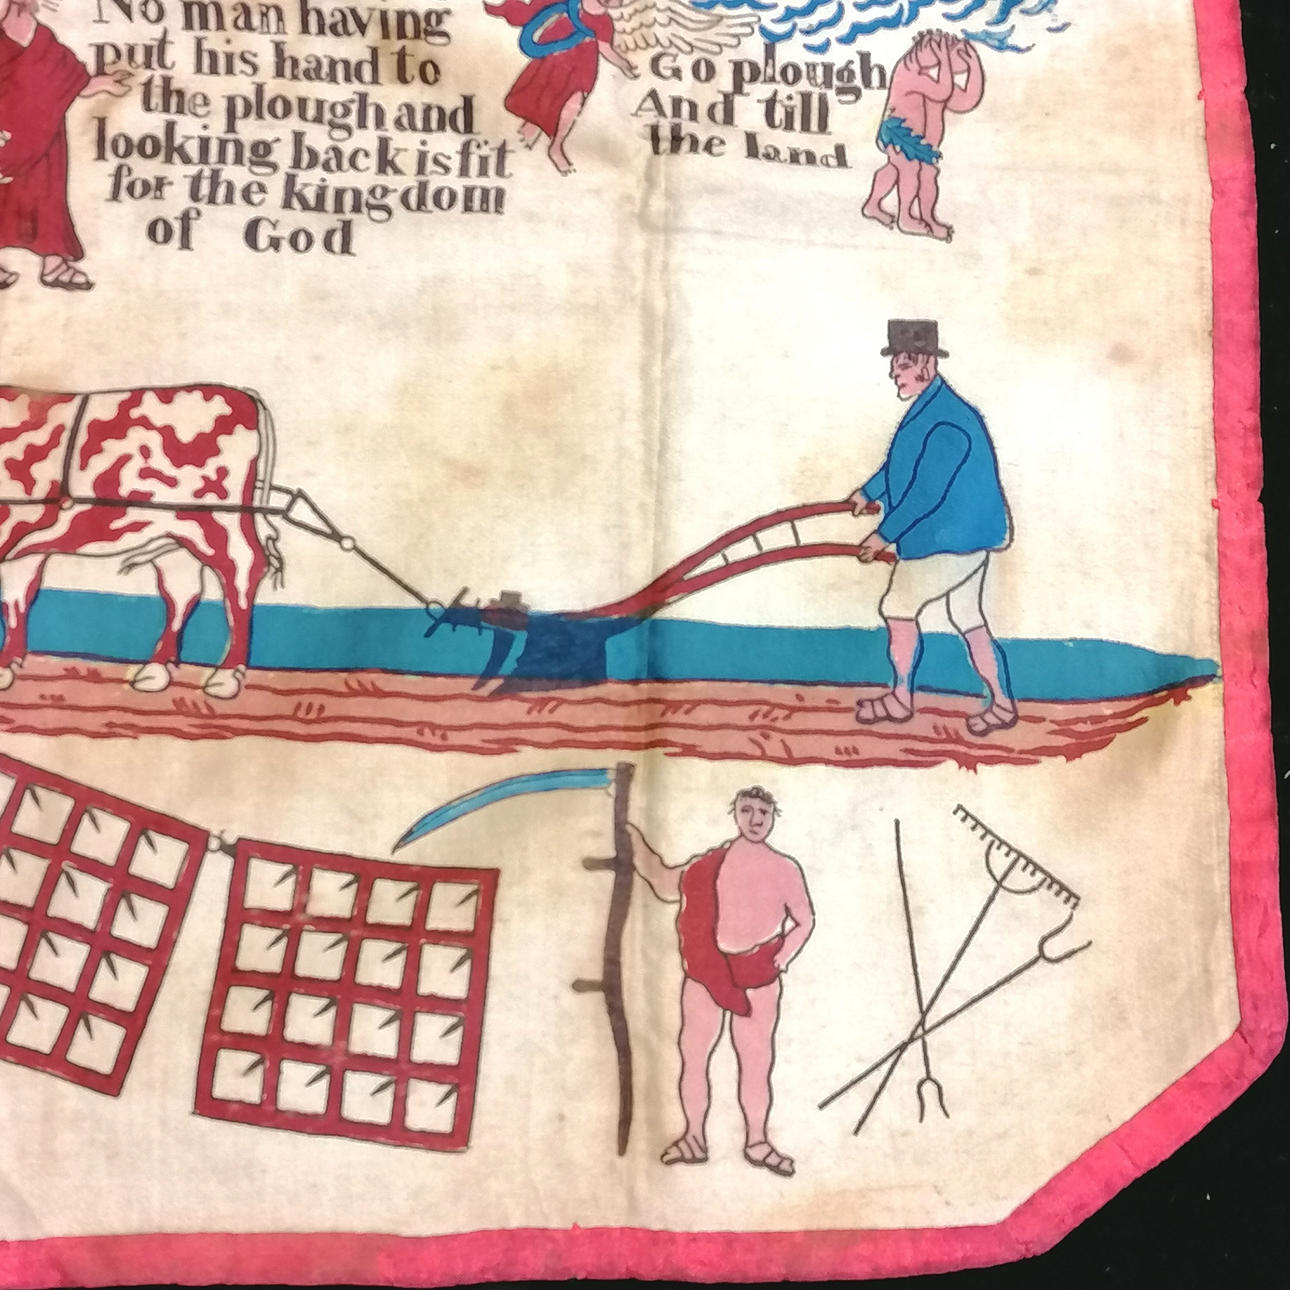 No man having
put his hand to
the plough and
looking back is fit
for the kingdom
of God
Go plough
And till
the land